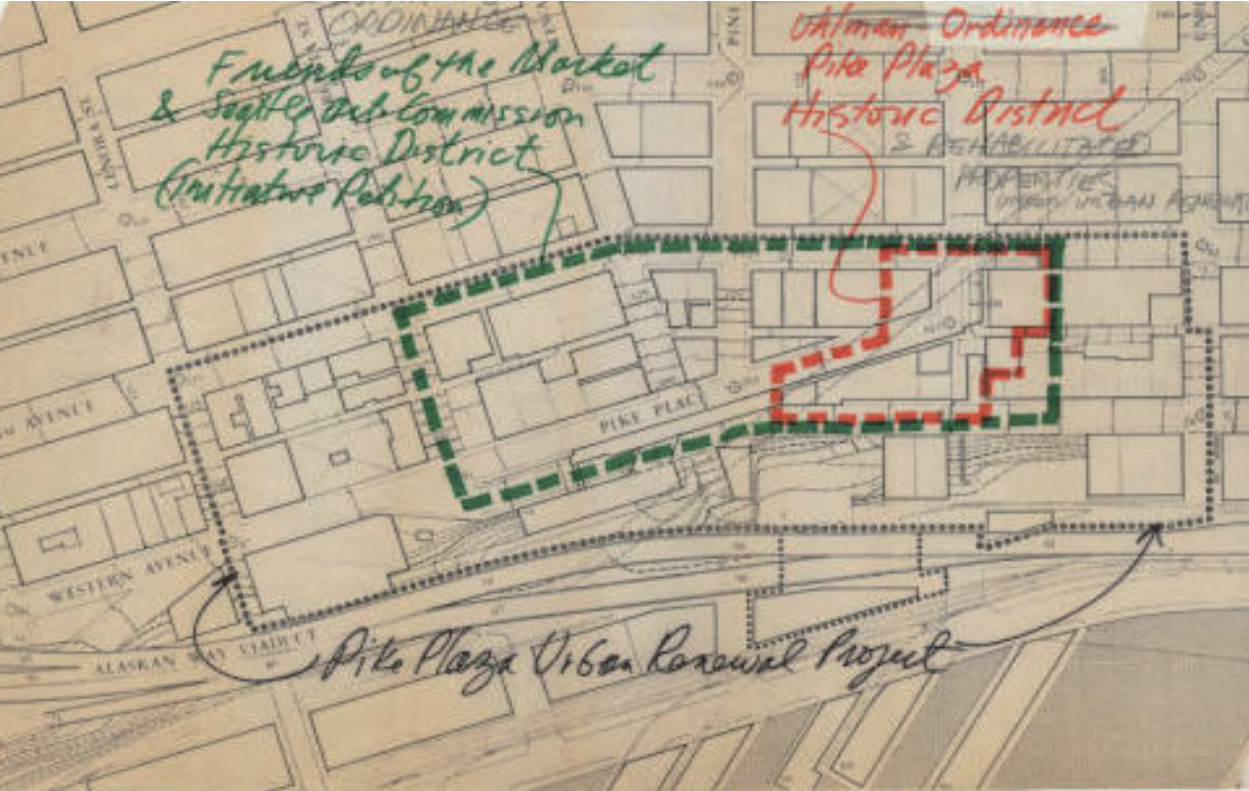 ORDINANCE
Friends of the Market
& Seattle Art Commission
Historic District
(Initiative Petition)
Uhlman Ordinance
Pike Plaza
Historic District
& REHABILITATED
PROPERTIES
UNDER URBAN RENEWAL
PINE
LENORA ST
1st AVENUE
PIKE PLACE
WESTERN AVENUE
ALASKAN WAY VIADUCT
Pike Plaza Urban Renewal Project